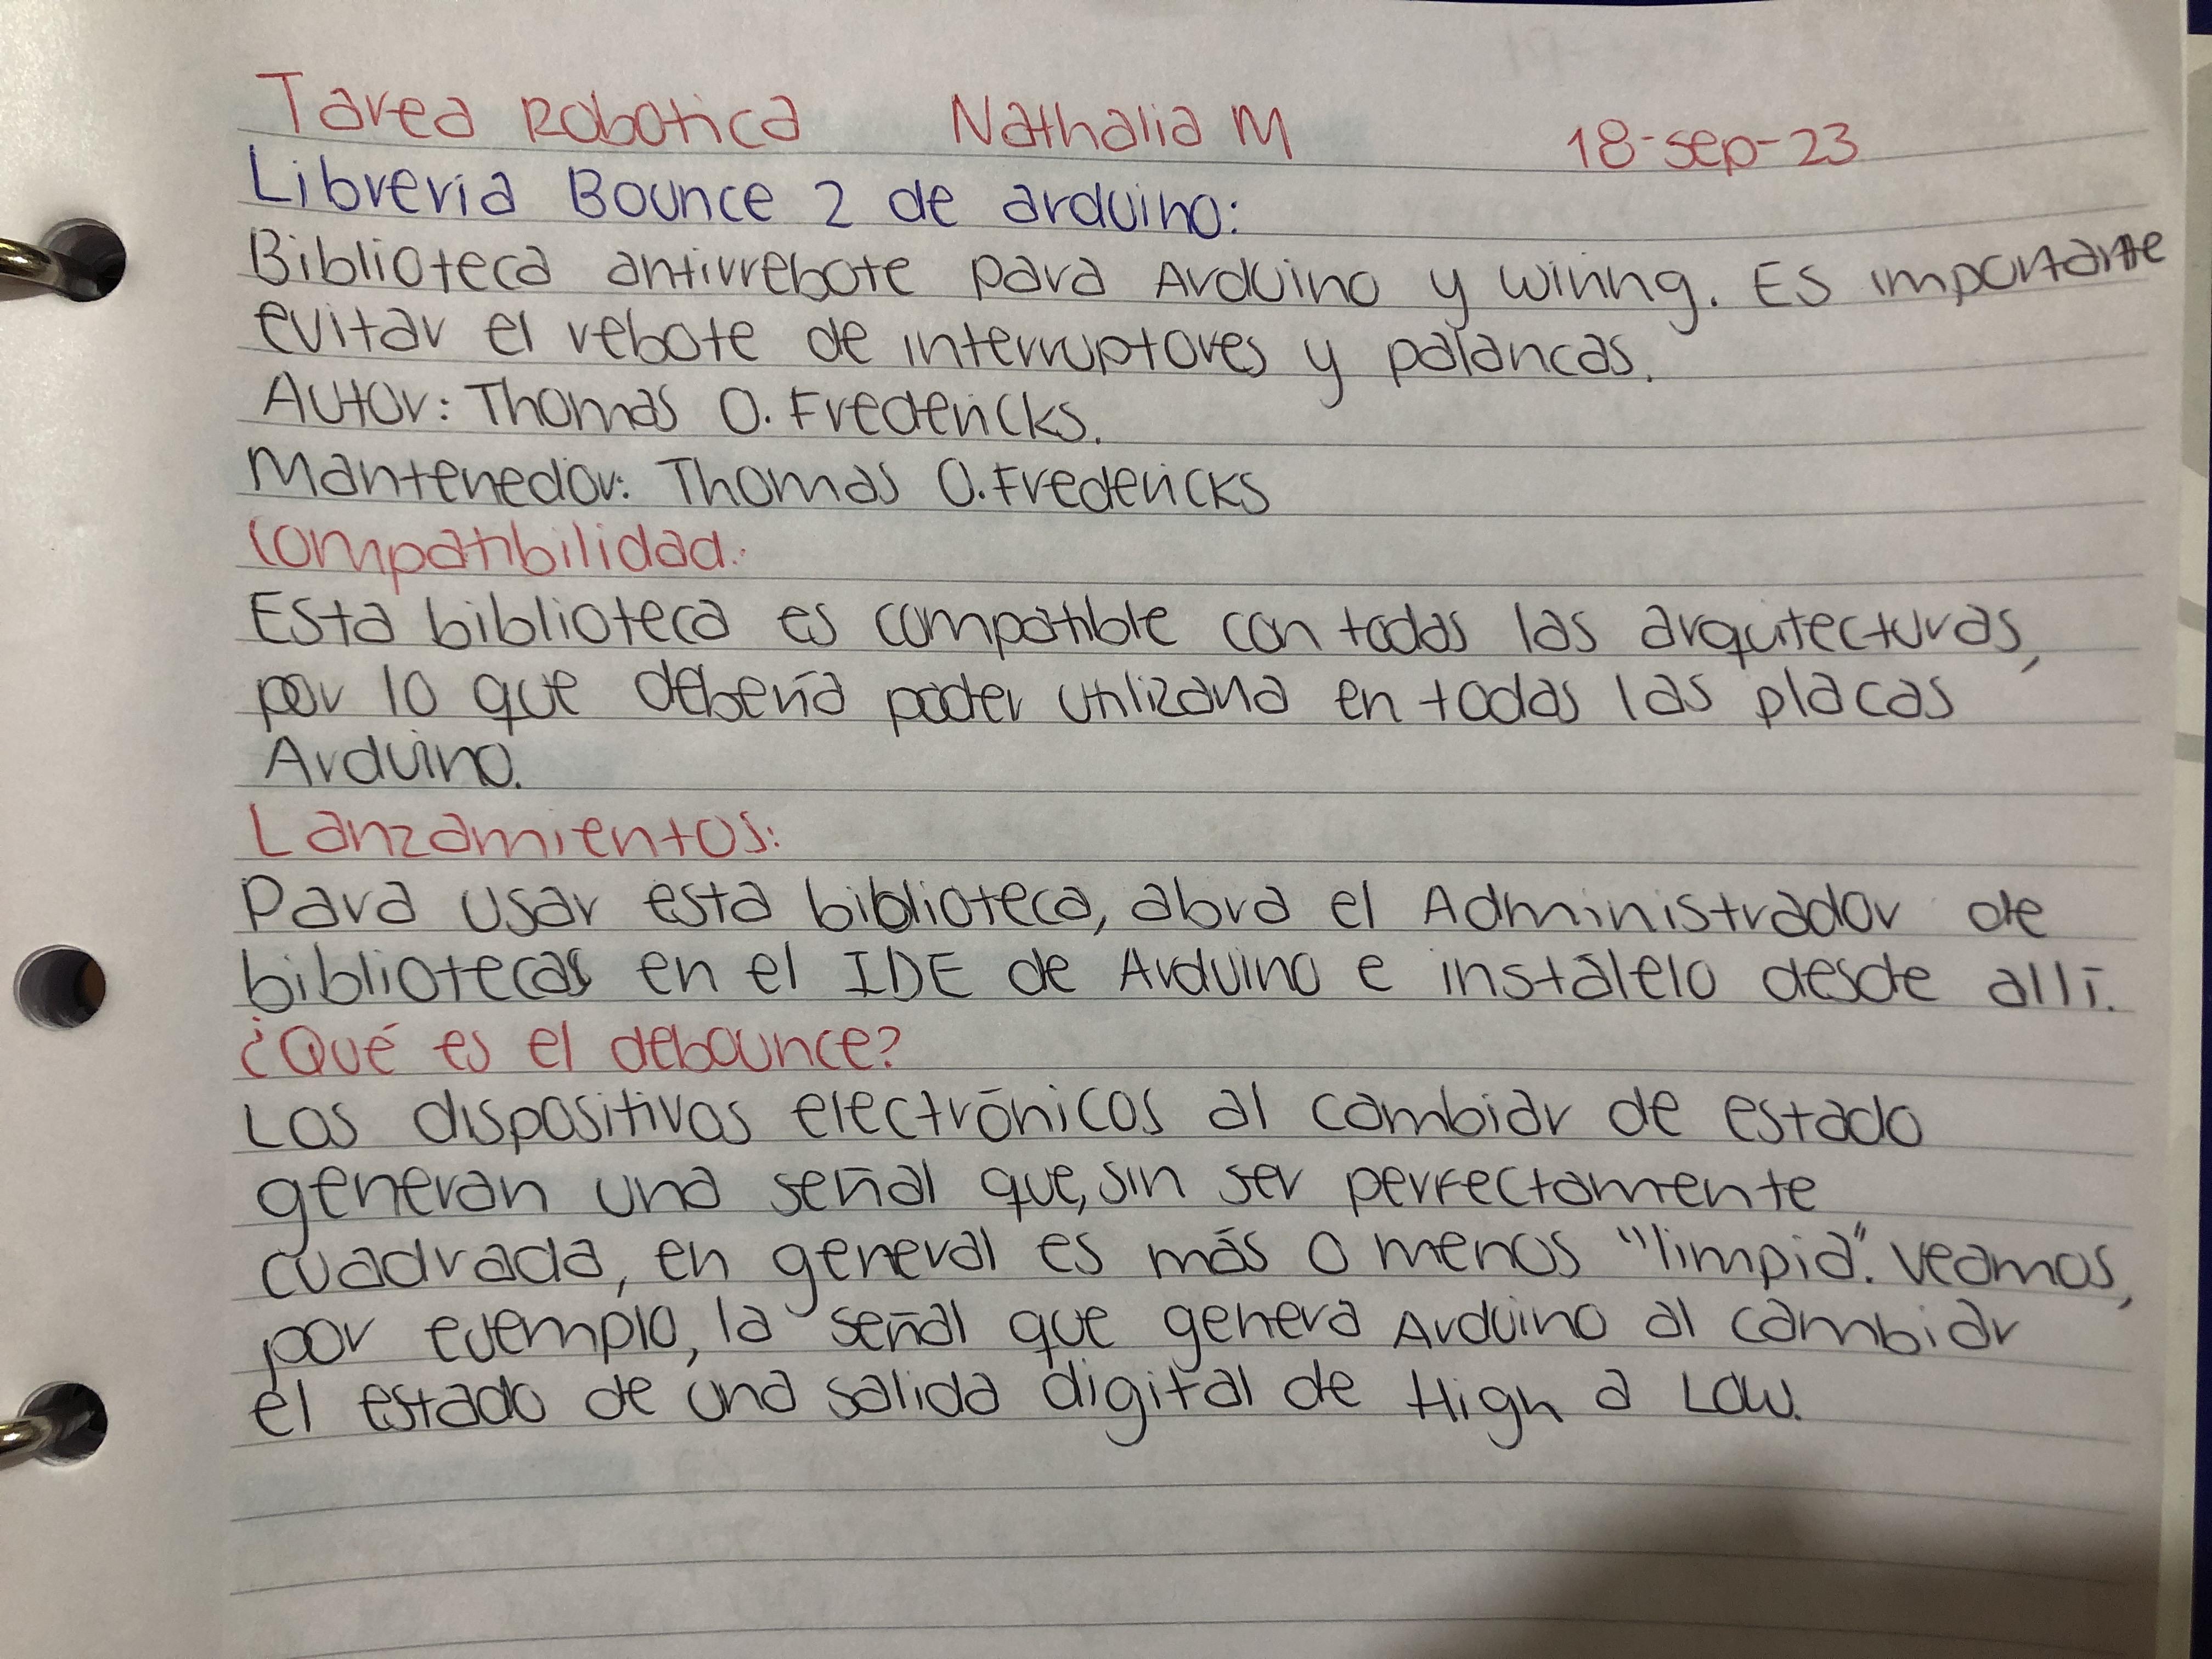 Tarea Robotica Nathalia M 18-sep-23
Libreria Bounce 2 de arduino:
Biblioteca antirrebote para Arduino y wiring. Es importante
evitar el rebote de interruptores y palancas.
Autor: Thomas O. Fredericks.
Mantenedor: Thomas O. Fredericks
Compatibilidad:
Esta biblioteca es compatible con todas las arquitecturas,
por lo que debería poder utilizarla en todas las placas
Arduino.
Lanzamientos:
Para usar esta biblioteca, abra el Administrador de
bibliotecas en el IDE de Arduino e instálelo desde allí.
¿Qué es el debounce?
Los dispositivos electrónicos al cambiar de estado
generan una señal que, sin ser perfectamente
cuadrada, en general es más o menos "limpia". Veamos,
por ejemplo, la señal que genera Arduino al cambiar
el estado de una salida digital de High a Low.